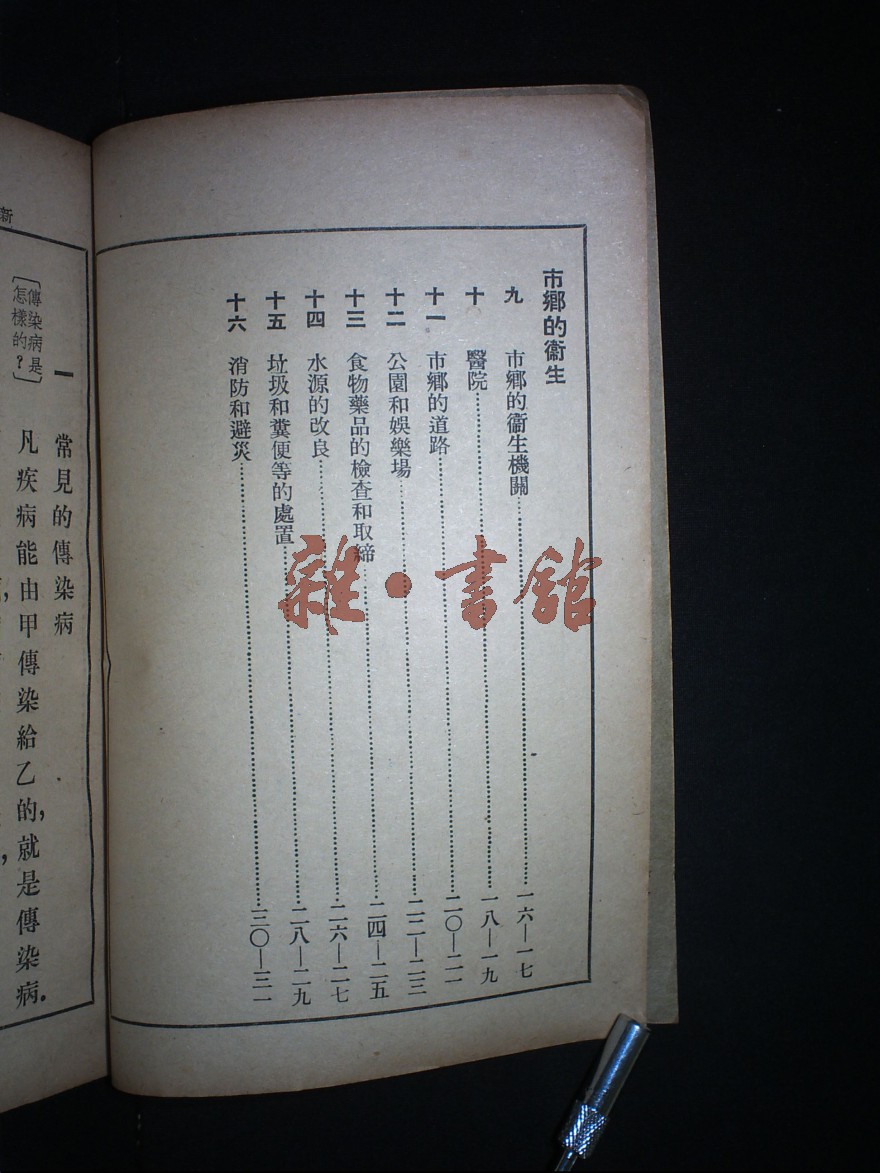 市鄉的衞生
九 市鄉的衞生機關……一六—一七
十 醫院……一八—一九
十一 市鄉的道路……二〇—二一
十二 公園和娛樂場……二二—二三
十三 食物藥品的檢查和取締……二四—二五
十四 水源的改良……二六—二七
十五 垃圾和糞便等的處置……二八—二九
十六 消防和避災……三〇—三一
雜·書館
新
一 常見的傳染病
〔傳染病是怎樣的？〕
凡疾病能由甲傳染給乙的，就是傳染病。